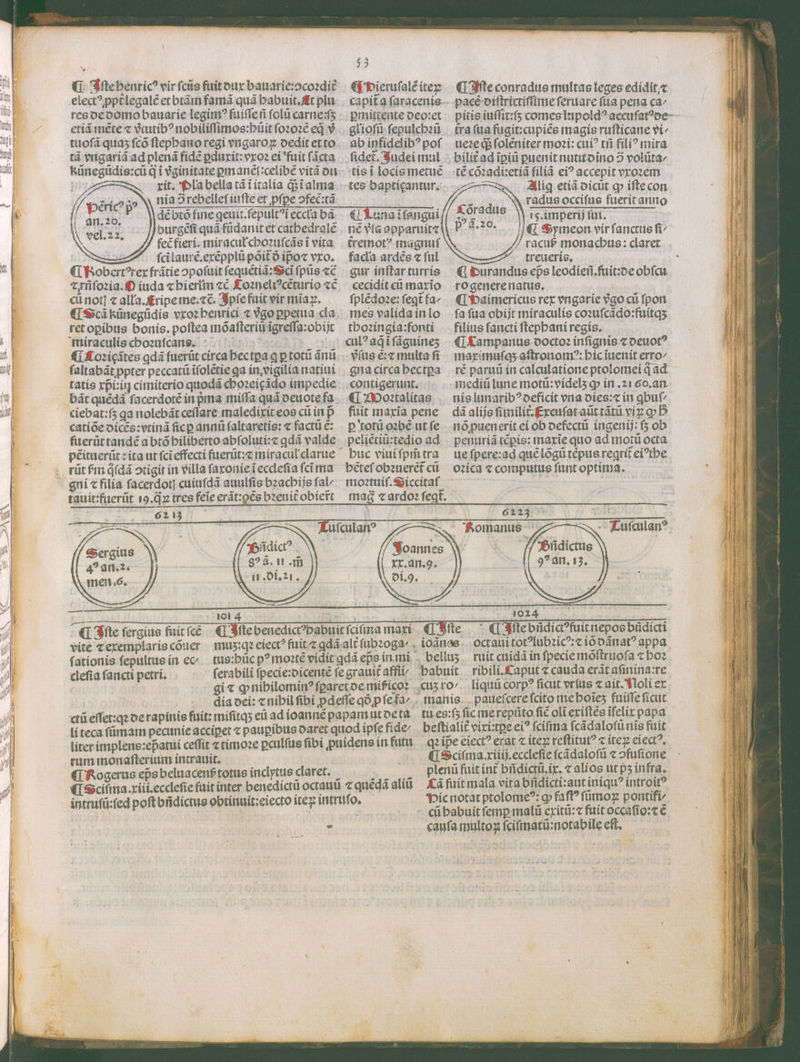 53
¶ Iste henricꝰ vir scūs fuit dux bauarie:ɔcordit̄
electꝰ,ppt̄ legalē et btām famā quā habuit. Et plu
res de domo bauarie legimꝰ fuisse n̄ solū carne:sꝫ
etiā mēte ⁊ v̄tutibꝰ nobilissimos:hūit sororē eq̄ v̄
tuosā quaꝫ scō stephano regi vngaroꝝ dedit et to
tā vngariā ad plenā fidē ꝑduxit:vxor eiꝰ fuit sācta
kūnegūdis:cū q̄ ī v̄ginitate ꝑmanēs:celibē vitā du
xit. Hāc bella tā ī italia q̄ꝫ ī alma
nia ɔ rebelles iuste et ,pspe ɔfec̄:tā
dē btō sine
burgēsi quā fūdauit et cathedralē
fec̄ fieri. miracul̓ choruscās ī vita
sci laurē.exēpplū poit̄ ō ip̄oꝛ vxo.
Hēricꝰ pꝰ
an.20.
vel.22.
¶ Robertꝰ rex frātie ɔposuit sequētiā:Sci spūs ⁊c̄
⁊ rn̄soria. O iuda ⁊ hierl̄m ⁊c̄ Cornelꝰ cēturio ⁊c̄
cū not̄ ⁊ all̓a. Eripe me.⁊c̄. Ipse fuit vir mīaꝝ.
¶ Scā kūnegūdis vxor henrici ⁊ v̄go ꝑpetua cla
ret opibus bonis. postea mōasteriū īgressa:obijt
miraculis choruscans.
¶ Corizātes qdā fuerūt circa hec tꝑa q ꝑ totū ānū
saltabāt,ppter peccatū īsolētie ꝗa in,vigilia natiui
tatis xp̄i:in cimiterio quodā choreizādo impedie
bāt quēdā sacerdotē in p̄ma missa quā deuote fa
ciebat:sꝫ ꝗa nolebāt cessare maledixit eos cū in p̄
catiōe dicēs:vtinā sic ꝑ annū saltaretis: ⁊ factū ē:
fuerūt tandē a btō hiliberto absoluti:⁊ qdā valde
pēituerūt : ita ut sci effecti fuerūt:⁊ miracul̓ clarue
rūt f̄m q̄sdā ɔtigit in villa saxonie ī ecclesia sci ma
gni ⁊ filia sacerdot̄ cuiusdā auulsis brachijs sal/
tauit:fuerūt 19.q̄ꝝ tres feīe erāt:oēs breuit̄ obierūt
¶ Hierusalē iteꝝ
capit̄ a saracenis
ꝑmittente deo:et
gl̓iosū sepulchrū
ab infidelibꝰ pos
sidet̄. Iudei mul
tis ī locis metuē
tes baptiçantur.
¶ Luna ī sangui
nē v̄sa apparuit:⁊
t̄remotꝰ magnus
facl̓a ardēs ⁊ sul
gur instar turris
cecidit cū maxīo
splēdore: seqt̄ fa/
mes valida in lo
thoringia:fonti
culꝰ aq̄ ī sāguineꝫ
v̄sus ē:⁊ multa si
gna circa hec tꝑa
contigerunt.
¶ Mortalitas
fuit maxīa pene
ꝑ totū orbē ut fe
peliētiū:tedio ad
huc viui spm̄ tra
hētes obruerēt̄ cū
mortuis. Siccitas
mag̓ ⁊ ardor seqt̄.
¶ Iste conradus multas leges edidit,⁊
pacē districtissime seruare sua pena ca/
pitis iussit:sꝫ comes lupoldꝰ accusatꝰ de
t̄ra sua fugit:cupiēs magis rusticane vi/
uere q̄ꝫ solēniter mori: cuiꝰ tn̄ filiꝰ mira
bilit̄ ad īpiū ꝑuenit nutu dīno ɔ volūta/
tē cōradi:etiā filiā eiꝰ accepit vxorem
Aliq etiā dicūt ꝙ iste con
radus occisus fuerit anno
15.imperij sui.
Cōradus
pꝰ ā.20.
¶ Symeon vir sanctus si/
racuꝰ monachus: claret
treueris.
¶ Durandus ep̄s leodieñ.fuit:de obscu
ro genere natus.
¶ Haimericus rex vngarie v̄go cū spon
sa sua obijt miraculis coruscādo:fuitqꝫ
filius sancti stephani regis.
¶ Campanus doctor insignis ⁊ deuotꝰ
maximusqꝫ astronomꝰ: hic īuenit erro/
rē paruū in calculatione ptolomei q̄ ad
mediū lune motū:videlꝫ ꝙ in .21 60.an
nis lunaribꝰ deficit vna dies:⁊ in qbus/
dā alijs similit̄. Excusat aūt tātū viꝝ ꝙ h̄
nō,puenerit ei ob defectū ingenij: sꝫ ob
penuriā tēpis: maxīe quo ad motū octa
ue spere:ad quē lōgū tēpus reqrit̄ eiꝰ the
orica ⁊ computus sunt optima.
6213
6223
Tusculanꝰ
Romanus
Tusculanꝰ
Sergius
4ꝰ an.2.
men.6.
Bn̄dictꝰ
8ꝰ ā. 11 .m̄
11 .di.21.
Joannes
xx.an.9.
di.9.
Bn̄dictus
9ꝰ an. 13.
1014
1024
¶ Iste sergius fuit scē
vite ⁊ exemplaris cōuer
sationis sepultus in ec/
clesia sancti petri.
¶ Iste benedictꝰ habuit scisma maxi
muꝫ:qꝛ eiectꝰ fuit ⁊ qdā alt̄ subroga/
tus:hūc pꝰ mortē vidit qdā ep̄s in mi
serabili specie:dicentē se grauit̄ affli/
gi ⁊ ꝙ nihilomīꝰ sꝑaret de mīsꝑicor
dia dei: ⁊ nihil sibi ,pdesse qō,p se fa/
ctū esset:qꝛ de rapinis fuit: misitqꝫ eū ad ioannē papam ut de ta
li teca sūmam pecunie acciꝑet ⁊ pauꝑibus daret quod ipse fide/
liter implens:ep̄atui cessit ⁊ timore ꝑculsus sibi ,puidens in futu
rum monasterium intrauit.
¶ Rogerus ep̄s beluacenꝭ totus inclytus claret.
¶ Scisma.xiii.ecclesie fuit inter benedictū octauū ⁊ quēdā aliū
intrusū:sed post bn̄dictus obtinuit:eiecto iteꝝ intruso.
¶ Iste
ioānes
belluꝫ
habuit
cuꝫ ro/
manis
¶ Iste bn̄dictꝰ fuit nepos bn̄dicti
octaui totꝰ lubricꝰ:⁊ iō dānatꝰ appa
ruit cuidā in specie mōstruosa ⁊ hor
ribili. Caput ⁊ cauda erāt asinina:re
liquū corpꝰ sicut vrsus ⁊ ait. Noli ex
pauescere scito me hoīeꝫ fuisse sicut
tu es:sꝫ sic me reputo sic̄ oli existēs īfelix papa
bestialit̄ vixi:tꝑe eiꝰ scisma scādalosū nīs fuit
qꝛ ip̄e eiectꝰ erat ⁊ iteꝝ restitutꝰ ⁊ iteꝝ eiectꝰ.
¶ Scisma.xiiij.ecclesie scādalosū ⁊ ɔfusione
plenū fuit int̄ bn̄dictū.ix. ⁊ alios ut pꝫ infra.
Tā fuit mala vita bn̄dicti:aut iniquꝰ introitꝰ
Hic notat ptolomeꝰ: ꝙ fastꝰ sūmoꝝ pontifi/
cū habuit semꝑ malū exitū:⁊ fuit occasio:⁊ ē
causa multoꝝ scismatū:notabile est.